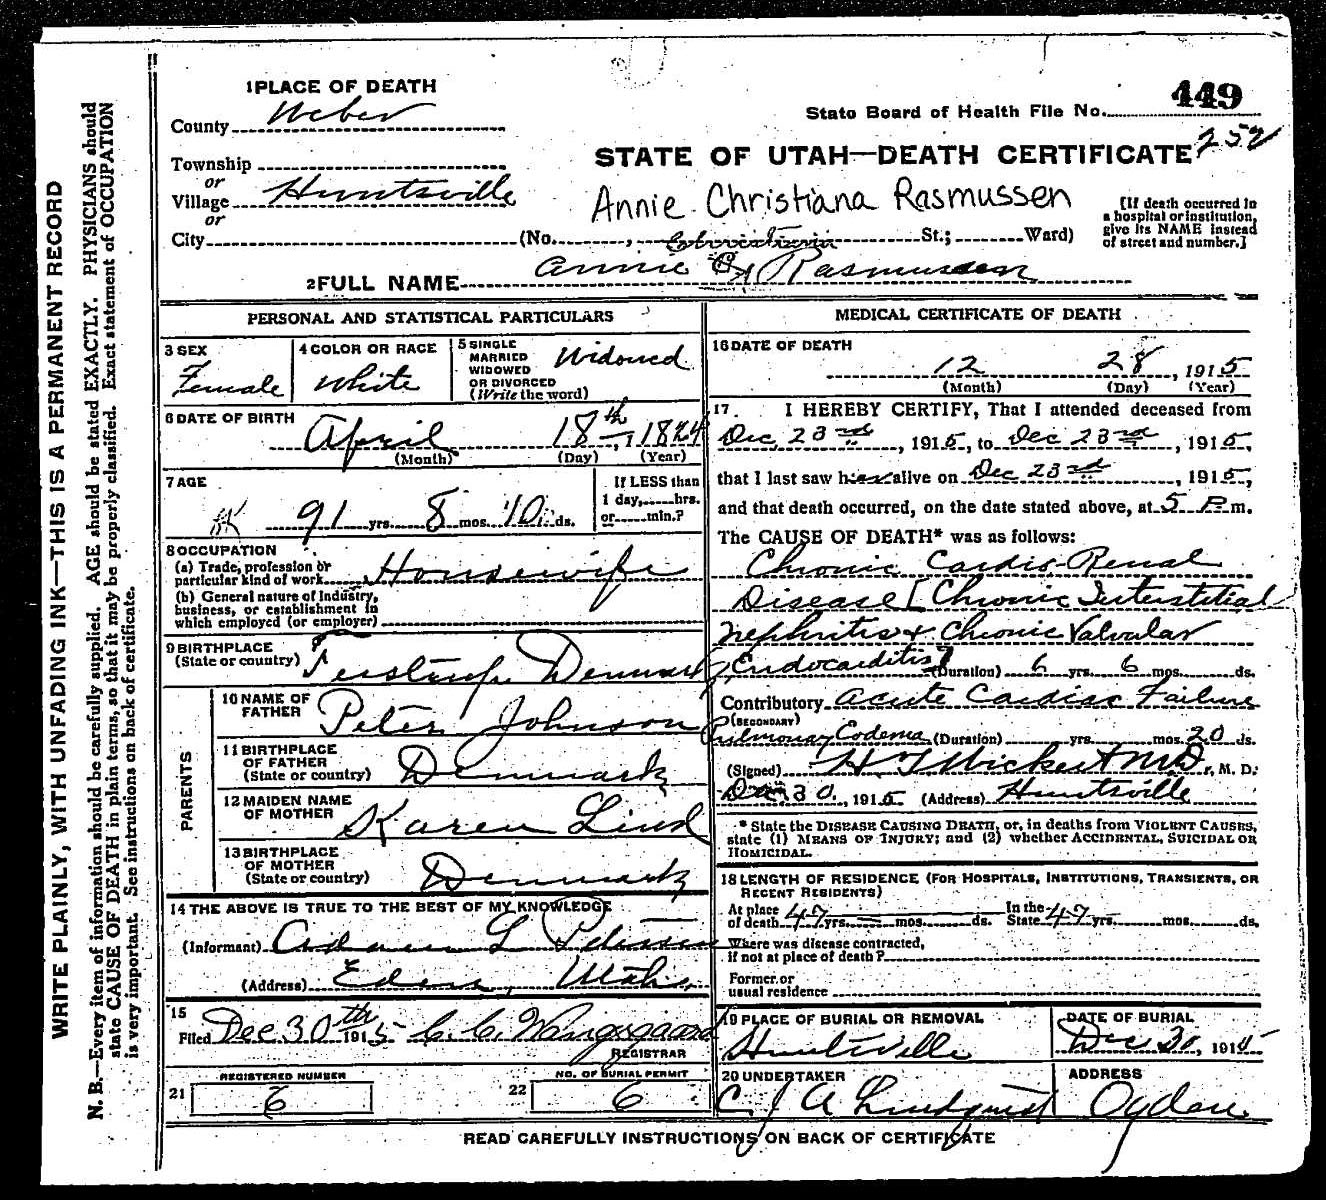 WRITE PLAINLY, WITH UNFADING INK—THIS IS A PERMANENT RECORD
N. B.—Every item of information should be carefully supplied. AGE should be stated EXACTLY. PHYSICIANS should
state CAUSE OF DEATH in plain terms, so that it may be properly classified. Exact statement of OCCUPATION
is very important. See instructions on back of certificate.
1 PLACE OF DEATH
County Weber
Township
or
Village Huntsville
or
City (No. , St.; Ward)
State Board of Health File No. 449
252
STATE OF UTAH—DEATH CERTIFICATE
Annie Christiana Rasmussen
[If death occurred in
a hospital or institution,
give its NAME instead
of street and number.]
2 FULL NAME Annie C Rasmussen
PERSONAL AND STATISTICAL PARTICULARS
3 SEX
Female
4 COLOR OR RACE
White
5 SINGLE
MARRIED
WIDOWED
OR DIVORCED
(Write the word)
Widowed
6 DATE OF BIRTH
April 18th, 1824
(Month) (Day) (Year)
7 AGE
91 yrs. 8 mos. 10 ds.
If LESS than
1 day, hrs.
or min.?
8 OCCUPATION
(a) Trade, profession or
particular kind of work Housewife
(b) General nature of Industry,
business, or establishment in
which employed (or employer)
9 BIRTHPLACE
(State or country) Denmark
PARENTS
10 NAME OF
FATHER Peter Johnson
11 BIRTHPLACE
OF FATHER
(State or country) Denmark
12 MAIDEN NAME
OF MOTHER Karen Lind
13 BIRTHPLACE
OF MOTHER
(State or country) Denmark
14 THE ABOVE IS TRUE TO THE BEST OF MY KNOWLEDGE
(Informant) L
(Address) Eden, Utah
15
Filed Dec 30th 1915 C. C. Wangsgaard
REGISTRAR
21 REGISTERED NUMBER
6
22 NO. OF BURIAL PERMIT
6
MEDICAL CERTIFICATE OF DEATH
16 DATE OF DEATH
12 28, 1915
(Month) (Day) (Year)
17. I HEREBY CERTIFY, That I attended deceased from
Dec 23rd, 1915, to Dec 23rd, 1915,
that I last saw her alive on Dec 23rd, 1915,
and that death occurred, on the date stated above, at 5 P.m.
The CAUSE OF DEATH* was as follows:
Chronic Cardio-Renal
Disease [Chronic Interstitial
Nephritis & Chronic Valvular
Endocarditis] (Duration) 6 yrs. 6 mos. ds.
Contributory Acute Cardiac Failure
(SECONDARY)
Pulmonary Eodema (Duration) yrs. mos. 20 ds.
(Signed) , M. D.
Dec 30, 1915 (Address) Huntsville
* State the DISEASE CAUSING DEATH, or, in deaths from VIOLENT CAUSES,
state (1) MEANS OF INJURY; and (2) whether ACCIDENTAL, SUICIDAL OR
HOMICIDAL.
18 LENGTH OF RESIDENCE (FOR HOSPITALS, INSTITUTIONS, TRANSIENTS, OR
RECENT RESIDENTS)
At place
of death 47 yrs. mos. ds.
In the
State 47 yrs. mos. ds.
Where was disease contracted,
if not at place of death?
Former or
usual residence
19 PLACE OF BURIAL OR REMOVAL
Huntsville
DATE OF BURIAL
Dec 30, 1915
20 UNDERTAKER
C J A Lindquist
ADDRESS
Ogden
READ CAREFULLY INSTRUCTIONS ON BACK OF CERTIFICATE